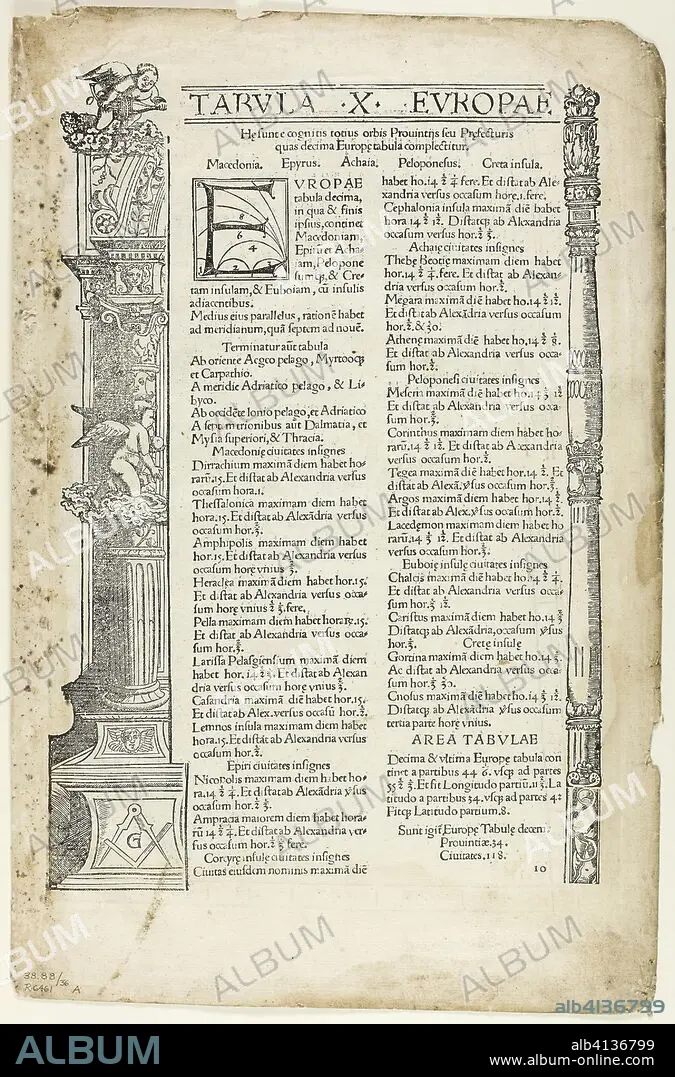 TABVLA ·X· EVROPAE
Hę sunt e cognitis totius orbis Prouintijs seu Prefecturis
quas decima Europę tabula complectitur.
Macedonia. Epyrus. Achaia. Peloponesus. Creta insula.
EVROPAE
tabula decima,
in qua & finis
ipsius, continet
Macedoniam,
Epirū et Acha-
iam, Pelopone
sumq;, & Cre-
tam insulam, & Euboiam, cū insulis
adiacentibus.
Medius eius parallelus, rationē habet
ad meridianum, quā septem ad nouē.
Terminatur aūt tabula
Ab oriente Aegeo pelago, Myrtooq;
et Carpathio.
A meridie Adriatico pelago, & Li-
byco.
Ab occidēte Ionio pelago, et Adriatico
A septemtrionibus aūt Dalmatia, et
Mysia superiori, & Thracia.
Macedonię ciuitates insignes
Dirrachium maximā diem habet ho-
rarū.15. Et distat ab Alexandria versus
occasum hora.1.
Thessalonica maximam diem habet
hora.15. Et distat ab Alexādria versus
occasum hor.
Amphipolis maximam diem habet
hor.15. Et distat ab Alexandria versus
occasum horę vnius
Heraclea maximā diem habet hor.15.
Et distat ab Alexandria versus occa-
sum horę vnius fere.
Pella maximam diem habet horarū.15.
Et distat ab Alexandria versus occa-
sum hor.
Larissa Pelasgiensium maximā diem
habet hor. Et distat ab Alexan
dria versus occasum horę vnius
Casandria maximā diem habet hor.15.
Et distat ab Alex. versus occasū hor.
Lemnos insula maximam diem habet
hora.15. Et distat ab Alexandria versus
occasum hor.
Epiri ciuitates insignes
Nicopolis maximam diem habet ho-
ra.14 Et distat ab Alexādria ỽsus
occasum hor.
Ampracia maiorem diem habet hora-
rū 14 Et distat ab Alexandria ver-
sus occasum hor. fere.
Corcyrę insulę ciuitates insignes
Ciuitas eiusdem nominis maximā diē
habet ho.14 fere. Et distat ab Ale-
xandria versus occasum horę.1. fere.
Cephalonia insula maximā diē habet
hora 14 Distatq; ab Alexandria
occasum versus hor.
Achaię ciuitates insignes
Thebę Beotię maximam diem habet
hor.14 fere. Et distat ab Alexan-
dria versus occasum hor.
Megara maximā diē habet ho.14
Et distat ab Alexādria versus occasum
hor. & 30.
Athenę maximā diē habet ho.14
Et distat ab Alexandria versus occa-
sum hor.
Peloponesi ciuitates insignes
Meseria maximā diē habet ho.14
Et distat ab Alexandria versus occa-
sum hor.
Corinthus maximam diem habet ho-
rarū.14 Et distat ab Alexandria
versus occasum hor.
Tegea maximā diem habet hor.14 Et
distat ab Alexā. ỽsus occasum hor.
Argos maximam diem habet hor.14
Et distat ab Alex. ỽsus occasum hor.
Lacedęmon maximam diem habet ho
rarū.14 Et distat ab Alexandria
versus occasum hor.
Euboię insulę ciuitates insignes
Chalcis maximā diē habet hor.14
Et distat ab Alexandria versus occa-
sum hor.
Caristus maximā diem habet hor.14
Distatq; ab Alexādria, occasum ỽsus
hor. Cretę insulę
Gortina maximā diem habet ho.14
Ac distat ab Alexandria versus occa-
sum hor. 30.
Cnosus maximā diē habet ho.14
Distatq; ab Alexādria ỽsus occasum
tertia parte horę vnius.
AREA TABVLAE
Decima & vltima Europę tabula con
tinet a partibus 44 6. vsq; ad partes
55 Et fit Longitudo partiū.11 La
titudo a partibus 34. vsq; ad partes 42
Fitq; Latitudo partium.8.
Sunt igit Europę Tabulę decem.
Prouintiæ.34.
Ciuitates.118.
10
8
6
4
2
G
38.88/36
R6461 A
ALBUM
alb4136799
ALBUM
alb4136799
www.album-online.com